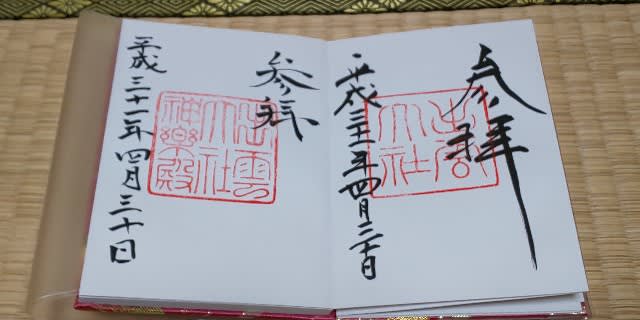 参拝
出雲
大社
平成三十一年四月三十日
参拝
出雲
大社
神楽殿
平成三十一年四月三十日